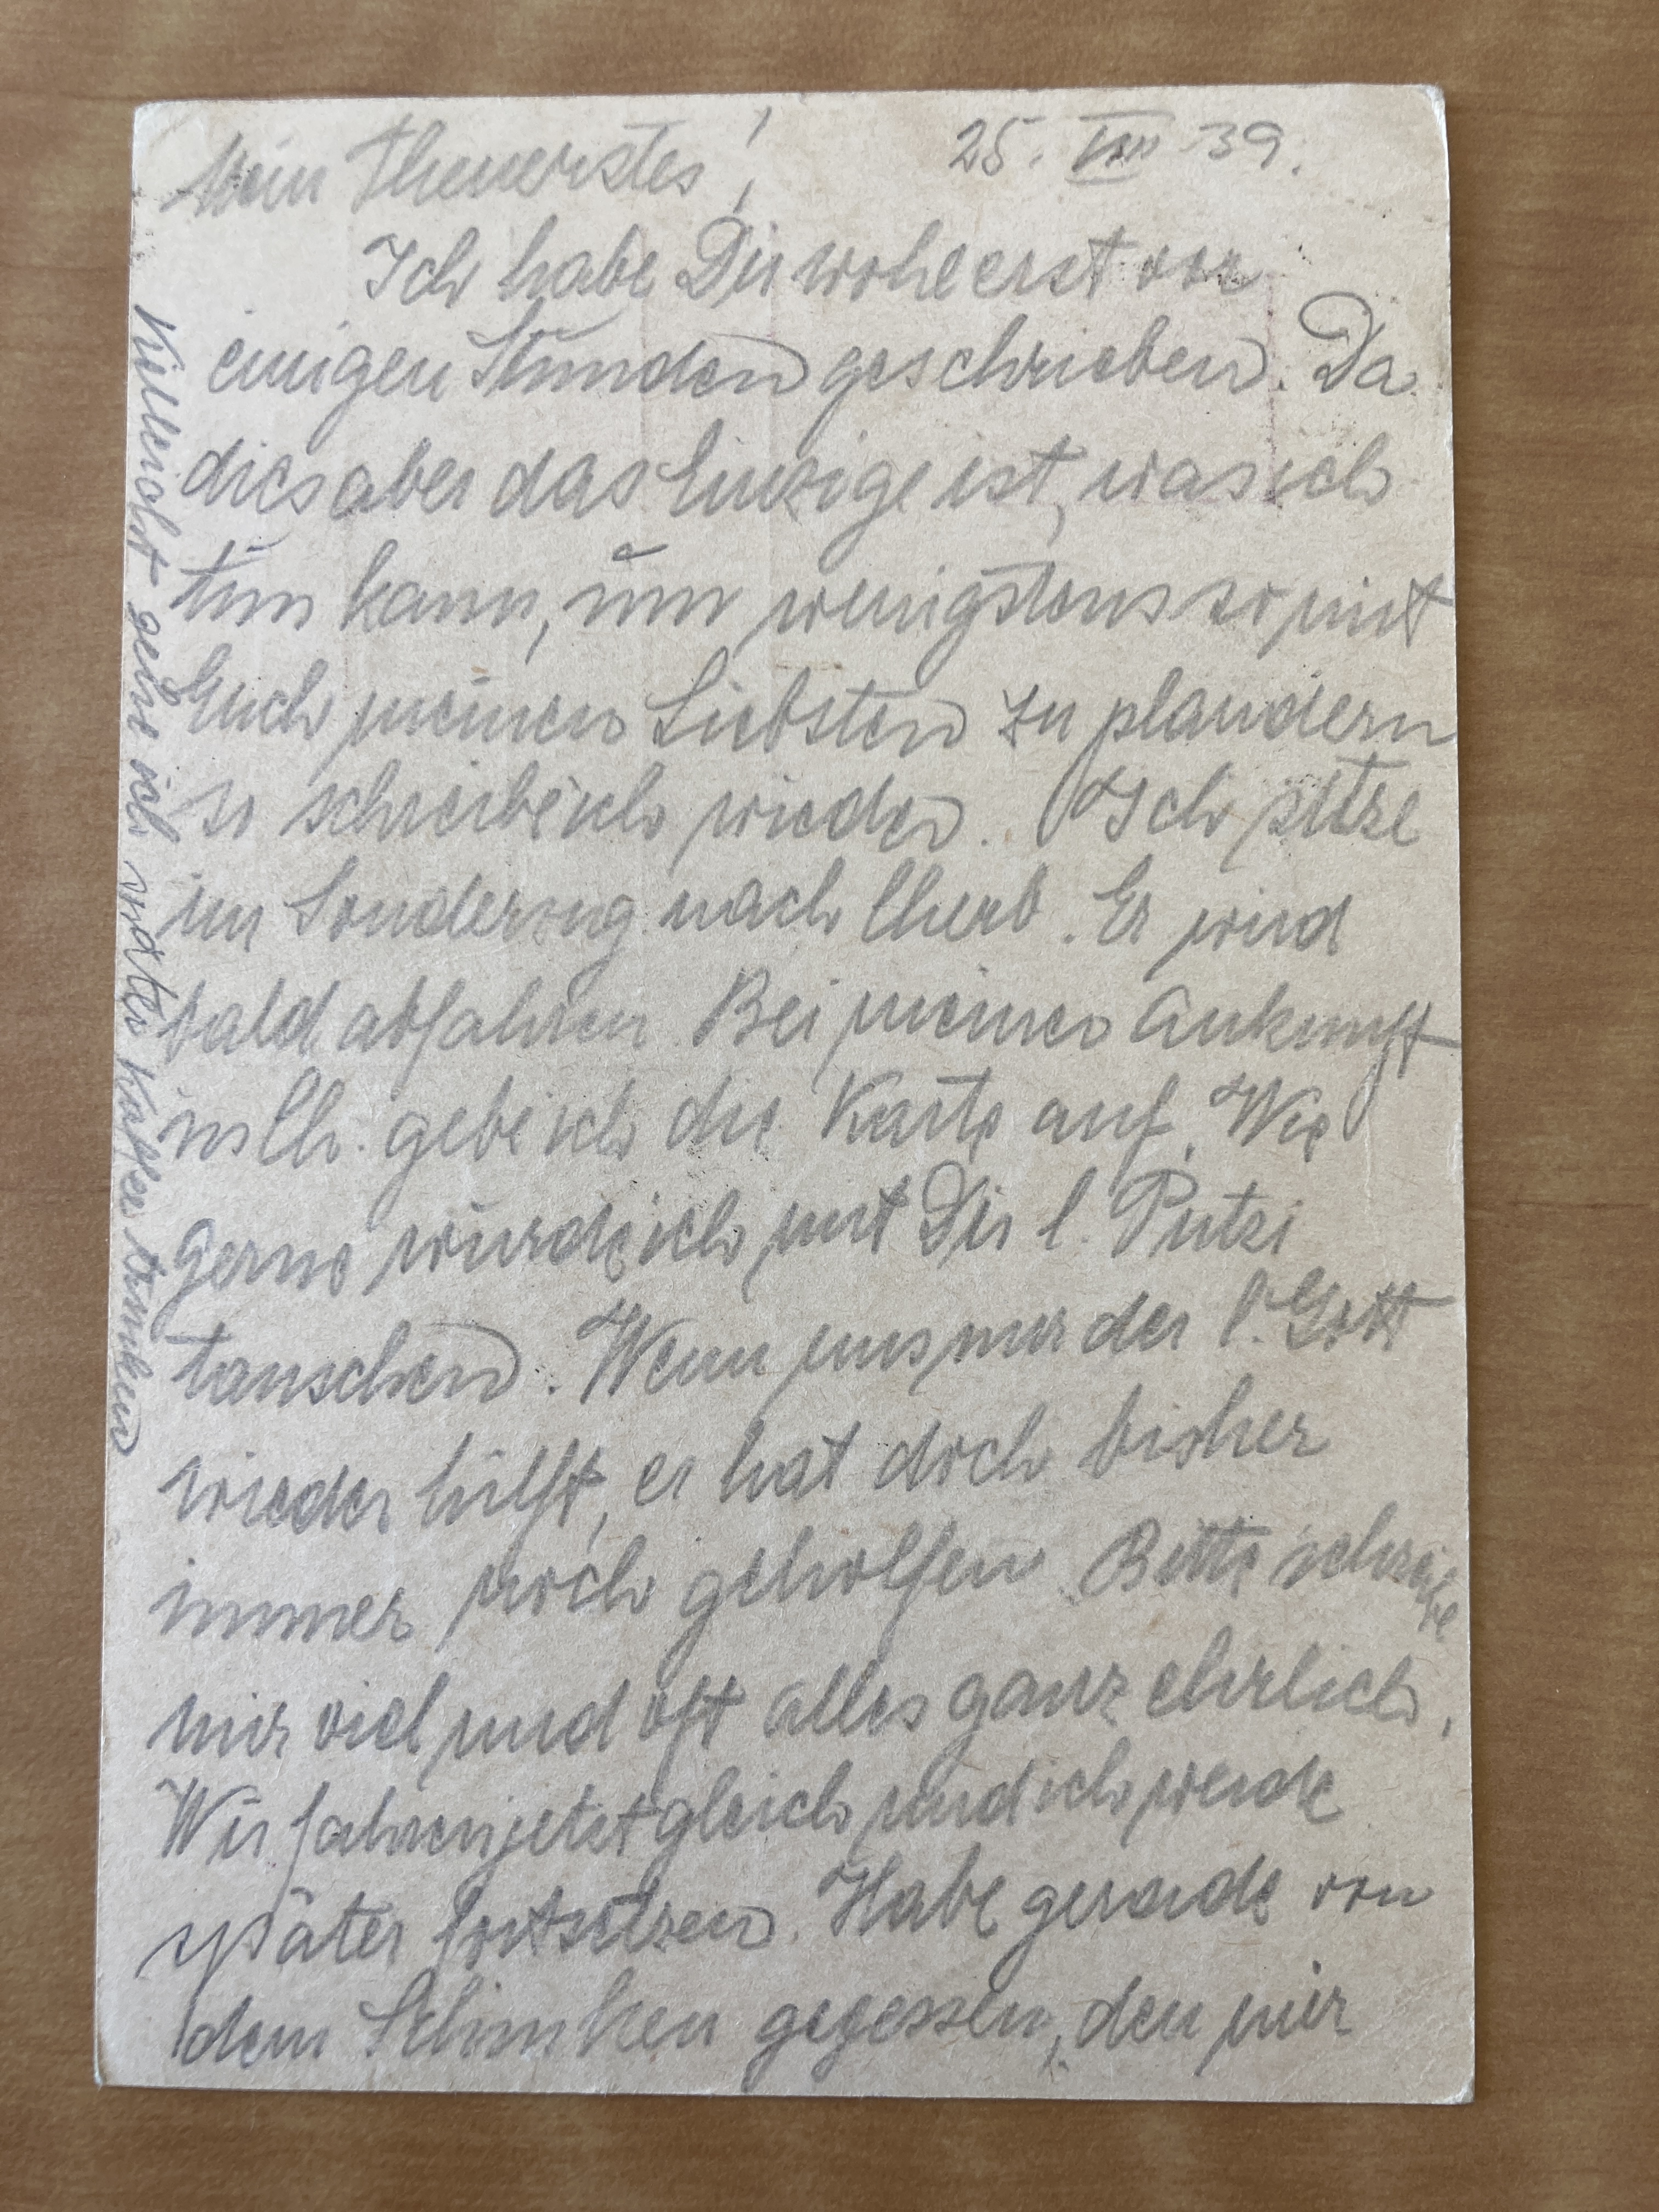 Mein Theuerstes! 25. VIII 39.
Ich habe Dir wohl erst vor
einigen Stunden geschrieben. Da
dies aber das Einzige ist, was ich
tun kann, um wenigstens so mit
Euch meinen Liebsten zu plaudern
so schreibe ich wieder. Ich sitze
im Sonderzug nach Cherb. Er wird
bald abfahren. Bei meiner Ankunft
in Ch. gebe ich die Karte auf. Wie
gerne würde ich mit Dir l. Putzi
tauschen. Wenn uns nur der l. Gott
wieder hilft, er hat doch bisher
immer noch geholfen. Bitte schreibe
mir viel und oft alles ganz ehrlich.
Wir fahren jetzt gleich und ich werde
später fortsetzen. Habe gerade von
dem Schinken gegessen, den mir
Vielleicht gehe ich später Kaffee trinken